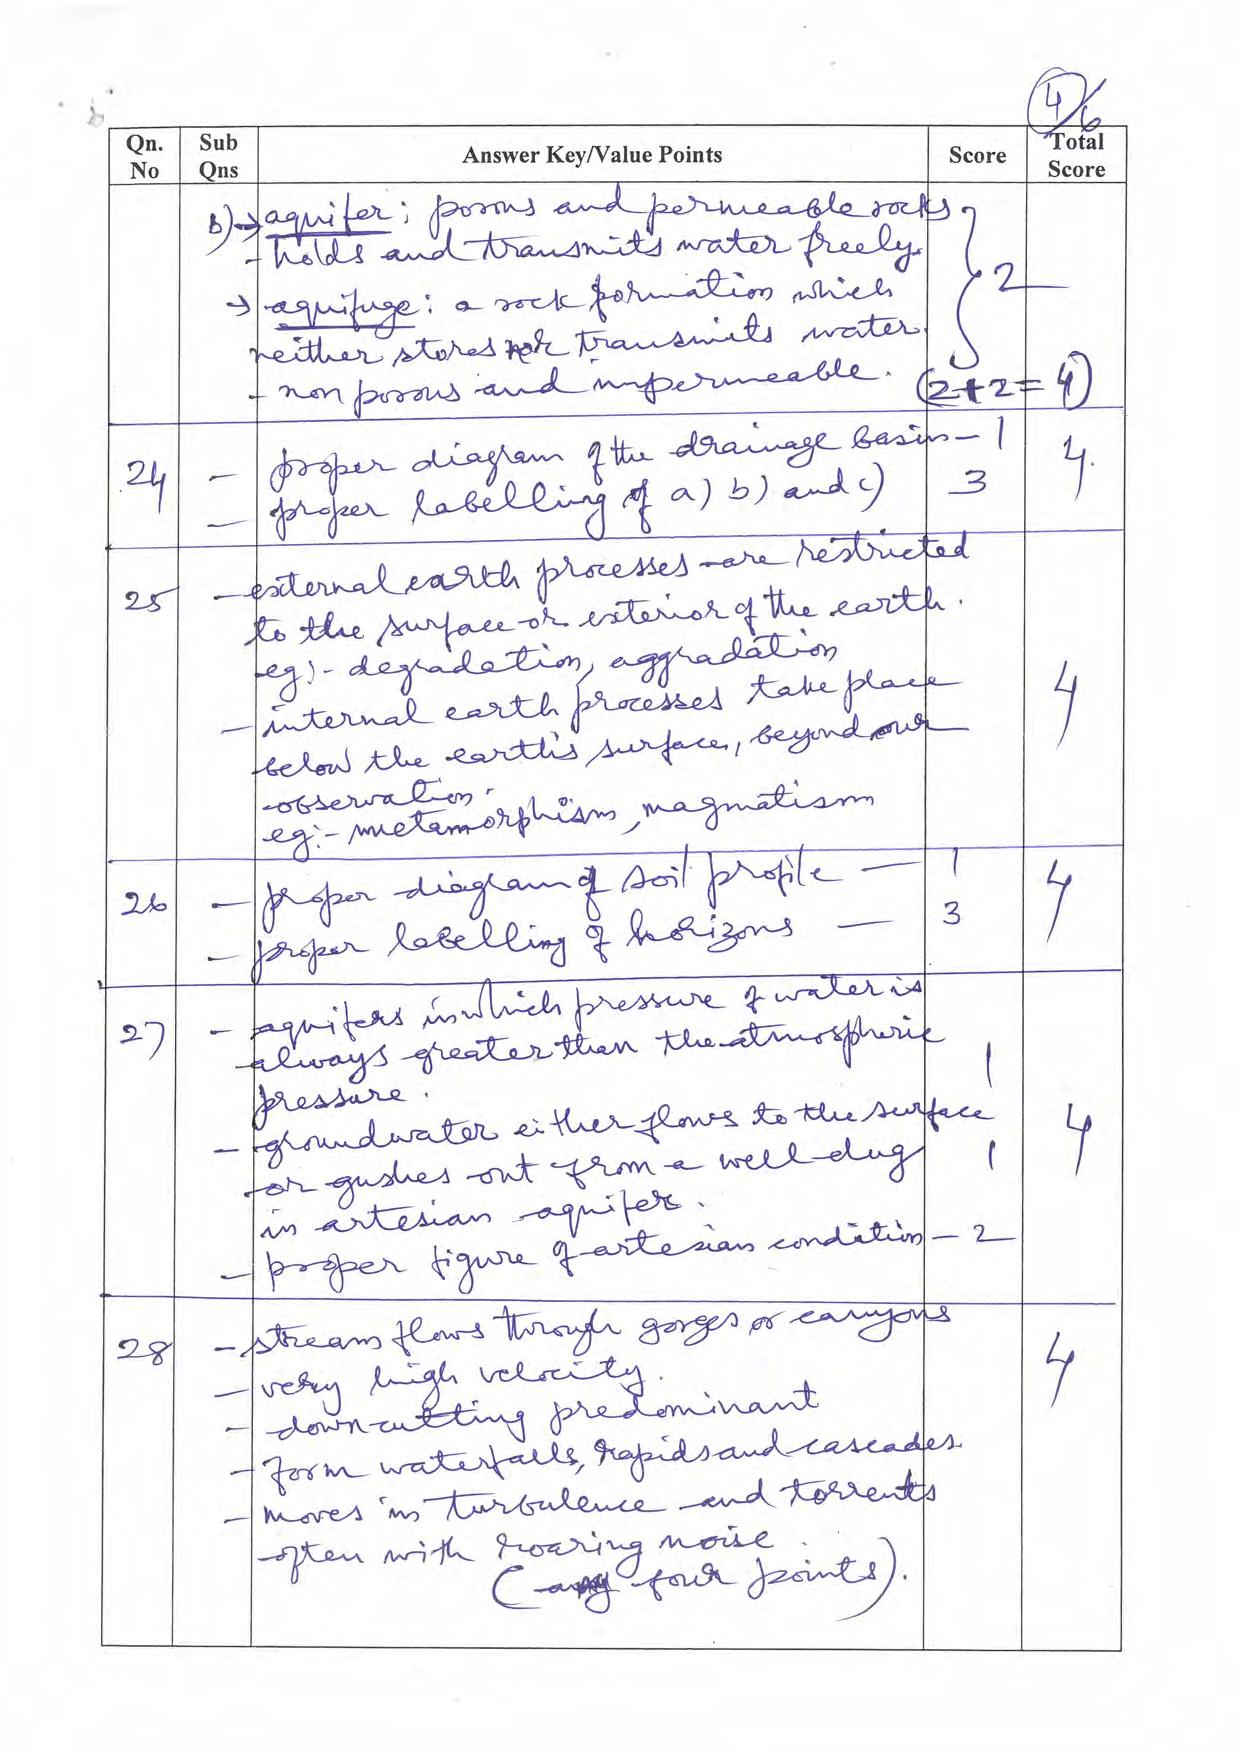 4/6
Qn. No | Sub Qns | Answer Key/Value Points | Score | Total Score
b) → aquifer : porous and permeable rocks
- holds and transmits water freely.
2
→ aquifuge : a rock formation which
neither stores nor transmits water.
- non porous and impermeable.
(2+2=4)
24 - proper diagram of the drainage basin - 1
4
- proper labelling of a) b) and c) 3
25 - external earth processes are restricted
to the surface or exterior of the earth.
eg:- degradation, aggradation
- internal earth processes take place
4
below the earth's surface, beyond our
observation.
eg:- metamorphism, magmatism
26 - proper diagram of soil profile - 1
4
- proper labelling of horizons - 3
27 - aquifers in which pressure of water is
always greater than the atmospheric
pressure. 1
- groundwater either flows to the surface
4
or gushes out from a well dug 1
in artesian aquifer.
- proper figure of artesian condition - 2
28 - stream flows through gorges or canyons
4
- very high velocity.
- downcutting predominant
- form waterfalls, rapids and cascades.
- moves in turbulence and torrents
often with roaring noise.
(any four points).